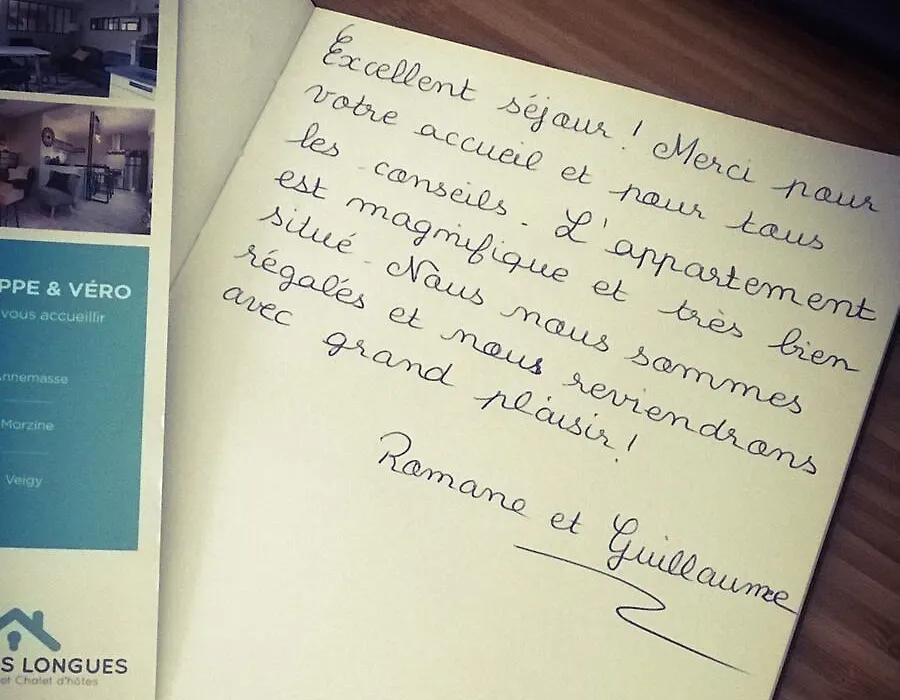 PPE & VÉRO
vous accueillir
nnemasse
Morzine
Veigy
S LONGUES
et Chalet d'hôtes
Excellent séjour ! Merci pour
votre accueil et pour tous
les conseils. L'appartement
est magnifique et très bien
situé. Nous nous sommes
régalés et nous reviendrons
avec grand plaisir !
Romane et Guillaume